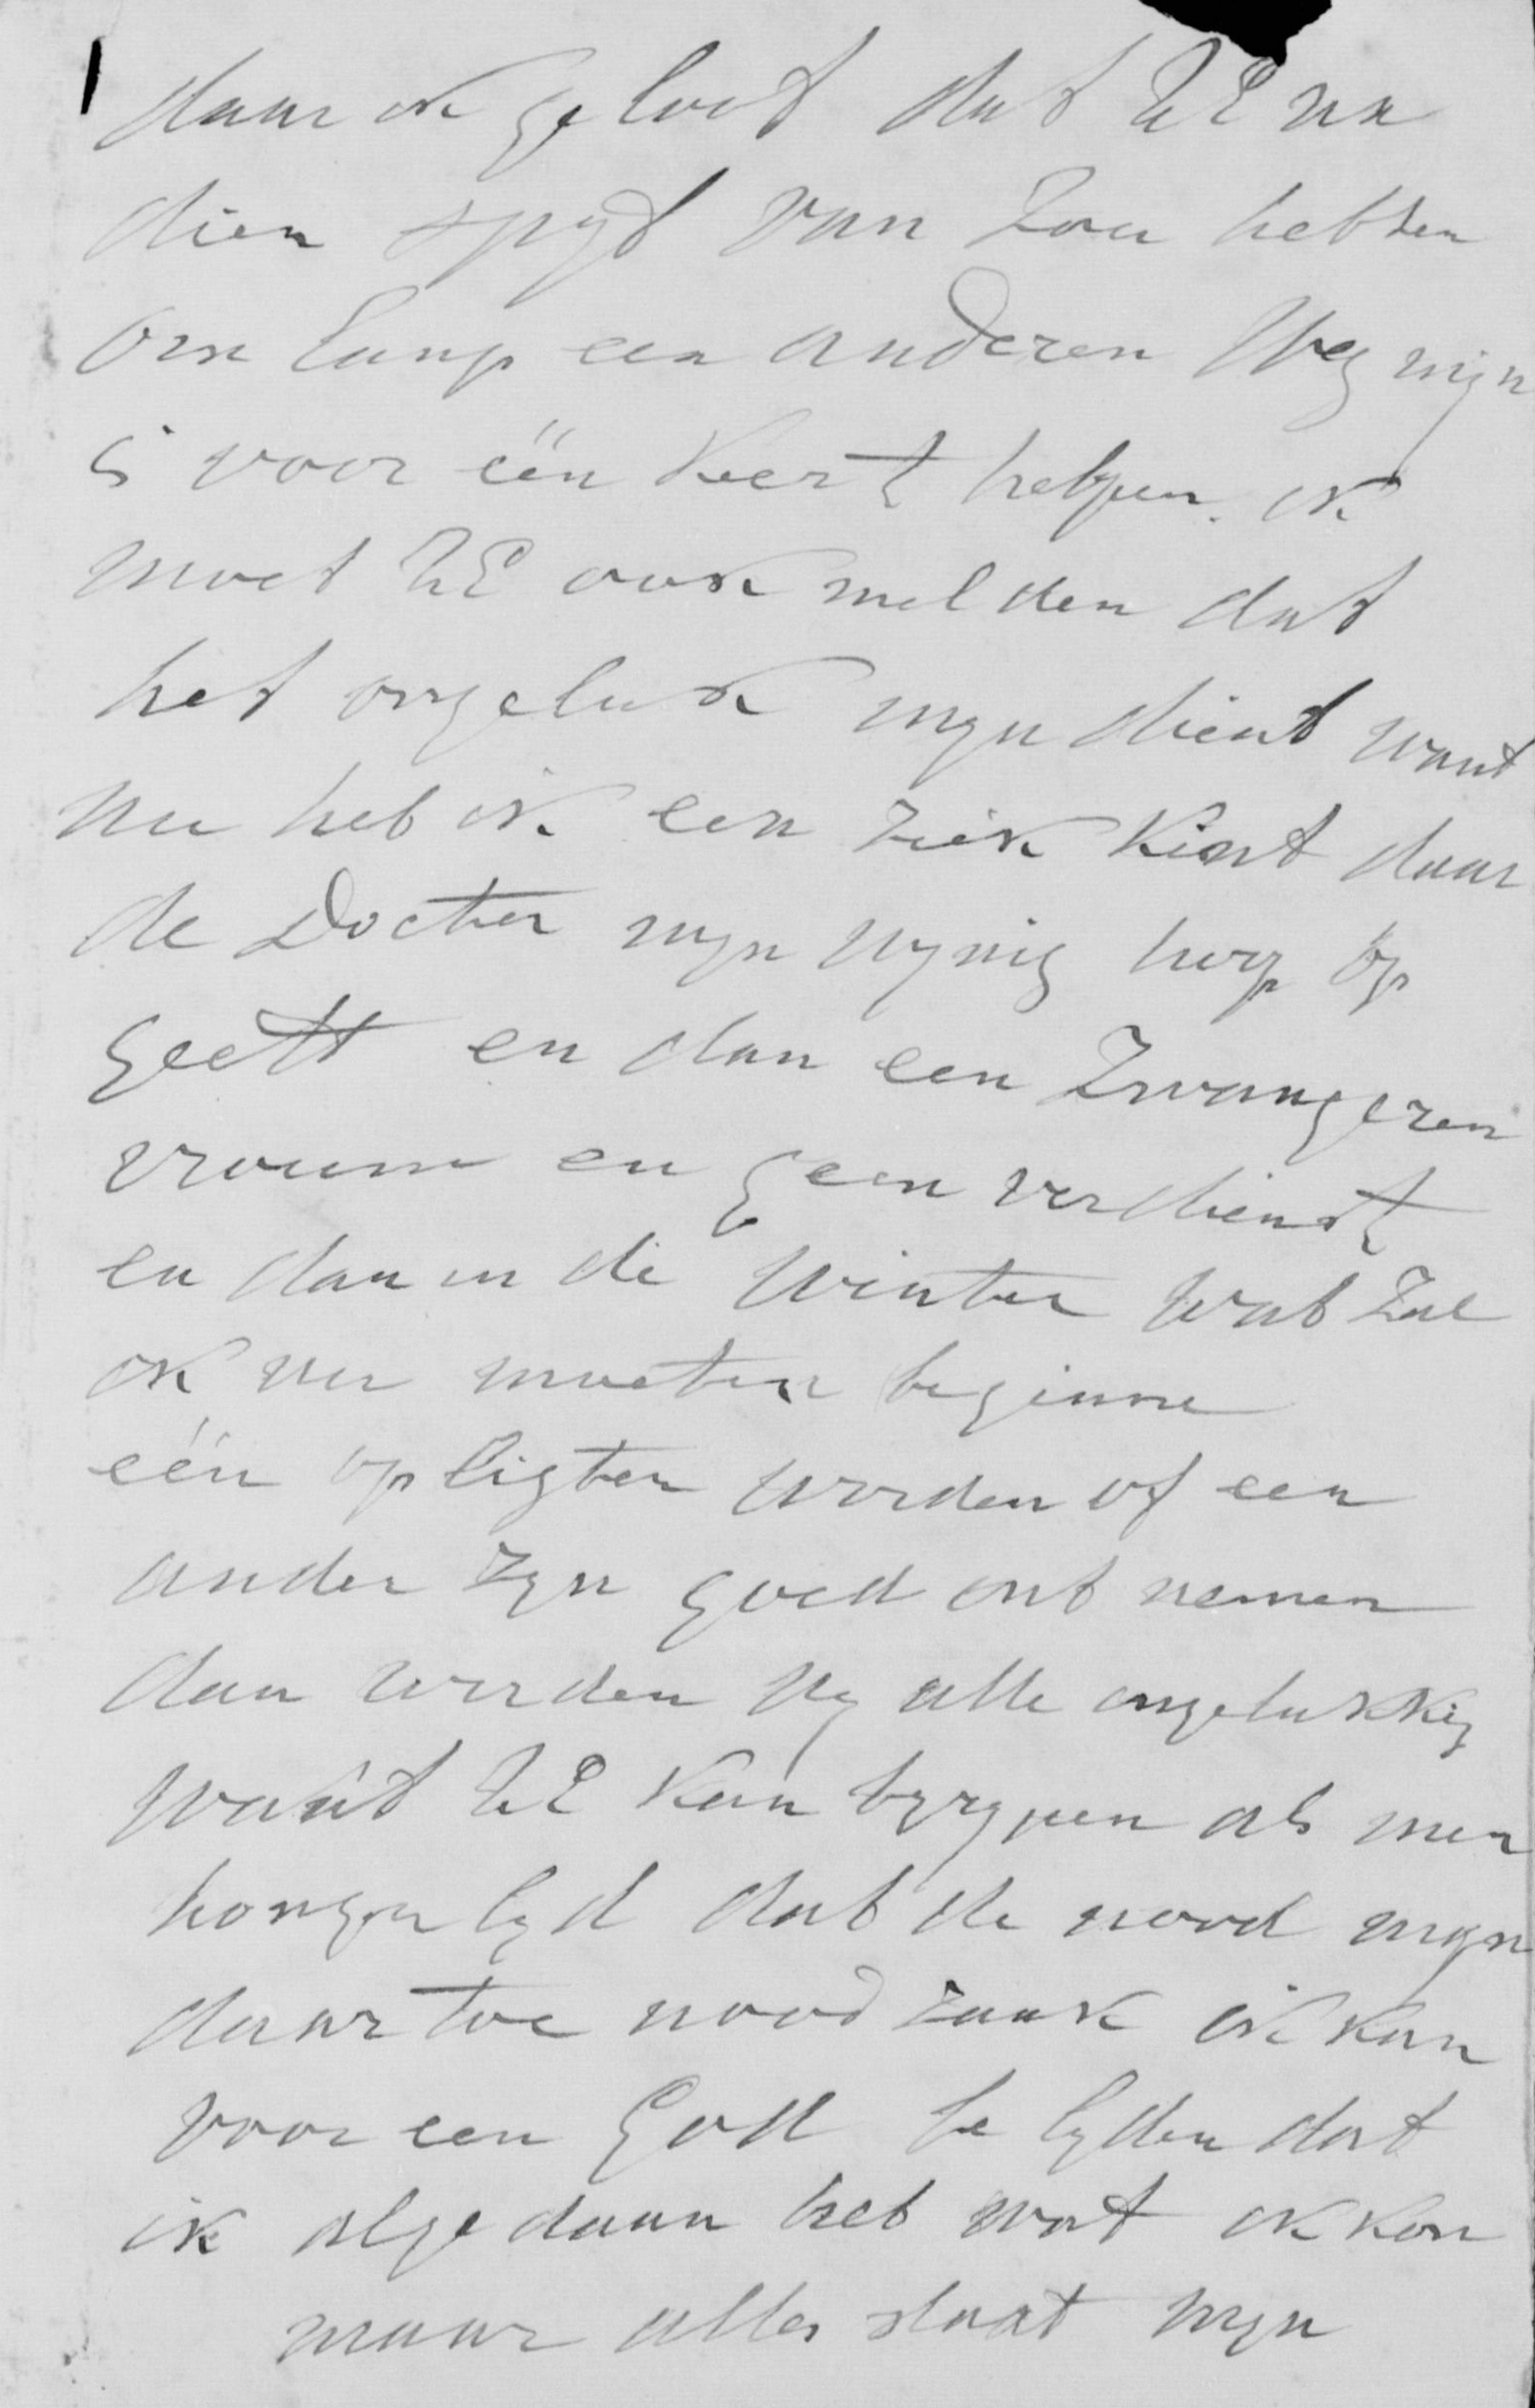 daar ik geloof dat UE na
dien spyt van zou hebben
om langs een anderen Weg mijn
is voor één keer te helpen. ik
moet UE ook melden dat
het ongeluk myn dient want
nu heb ik een ziek kint daar
de Docter myn wynig hoop op
geeft en dan een Zwangeren
vrouw en geen verdienst
en dan in de Winter wat zal
ik nu moeten beginne
één opligter worden of een
ander zyn goed ont nemen
dan worden wy alle ongelukkig
want UE kan bygrypen als men
honger lyd dat de nood myn
daar toe nood zaak ik kan
voor een God be lyden dat
ik al gedaan heb wat ik kon
maar alles slaat myn